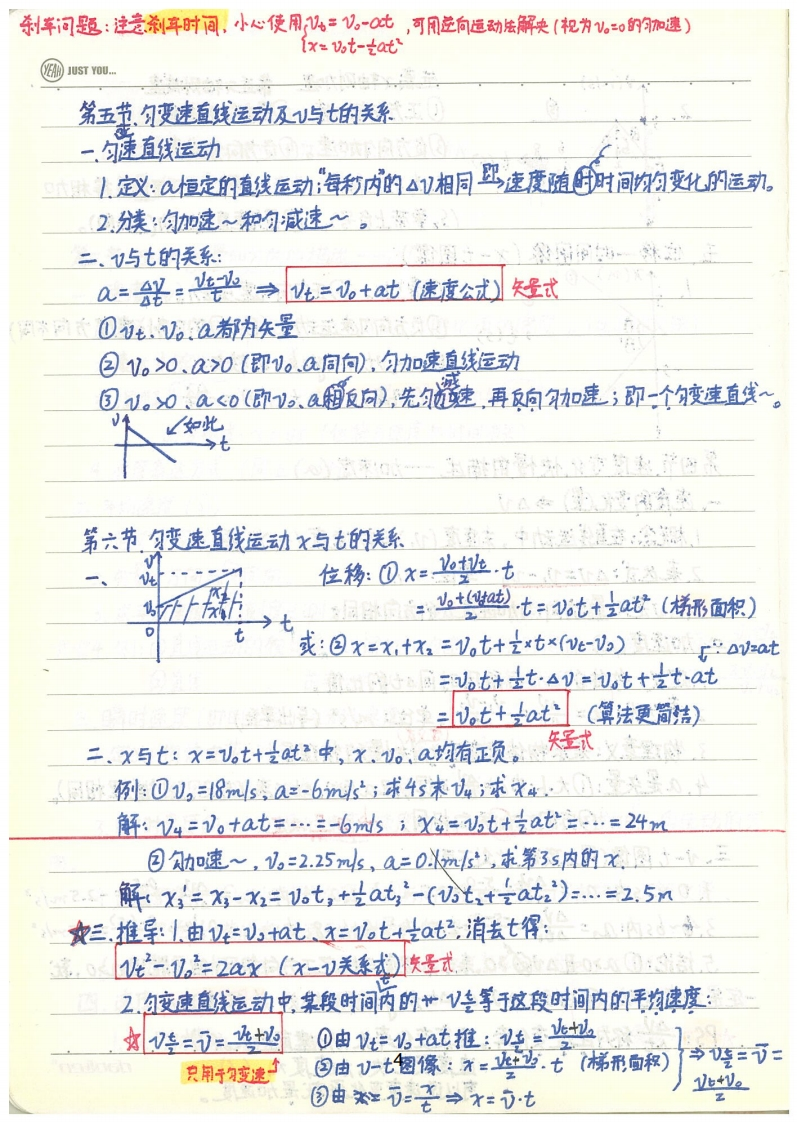 刹车问题：注意刹车时间，小心使用{vt=v₀-at ，可用逆向运动法解决（视为v₀=0的匀加速）
{x=v₀t-½at²
YEAH JUST YOU...
第五节 匀变速直线运动及v与t的关系
一、匀变速直线运动
1.定义：a恒定的直线运动；"每秒内"的Δv相同 即→速度随时时间均匀变化的运动。
2.分类：匀加速～和匀减速～。
二、v与t的关系：
a=Δv/Δt=(vt-v₀)/t ⇒ vt=v₀+at (速度公式) 矢量式
①vt、v₀、a都为矢量
②v₀>0、a>0(即v₀、a同向)，匀加速直线运动
③v₀>0、a<0(即v₀、a相反向)，先匀减速，再反向匀加速；即一个匀变速直线～。
v ↙如此
t
第六节 匀变速直线运动x与t的关系
一、 v vt v₀ 0 x₂ x₁ t t 位移：①x=(v₀+vt)/2·t
=(v₀+(v₀+at))/2·t=v₀t+½at² (梯形面积)
或：②x=x₁+x₂=v₀t+½×t×(vt-v₀) ∵Δv=at
=v₀t+½t·Δv=v₀t+½t·at
=v₀t+½at² (算法更简洁)
矢量式
二、x与t：x=v₀t+½at²中，x、v₀、a均有正负。
例：①v₀=18m/s，a=-6m/s²；求4s末v₄；求x₄.
解：v₄=v₀+at=…=-6m/s ；x₄=v₀t+½at²=…=24m
②匀加速～，v₀=2.25m/s，a=0.1m/s²，求第3s内的x.
解：x₃'=x₃-x₂=v₀t₃+½at₃²-(v₀t₂+½at₂²)=…=2.5m
☆三.推导：1.由vt=v₀+at、x=v₀t+½at²，消去t得：
vt²-v₀²=2ax (x-v关系式) 矢量式
2.匀变速直线运动中，某段时间内的v t/2等于这段时间内的平均速度：
☆ v t/2=v̄=(vt+v₀)/2 ①由vt=v₀+at推：v t/2=(vt+v₀)/2
只用于匀变速↑ ②由v-t图像：x=(vt+v₀)/2·t (梯形面积) }⇒v t/2=v̄=(vt+v₀)/2
4
③由v̄=x/t⇒x=v̄·t